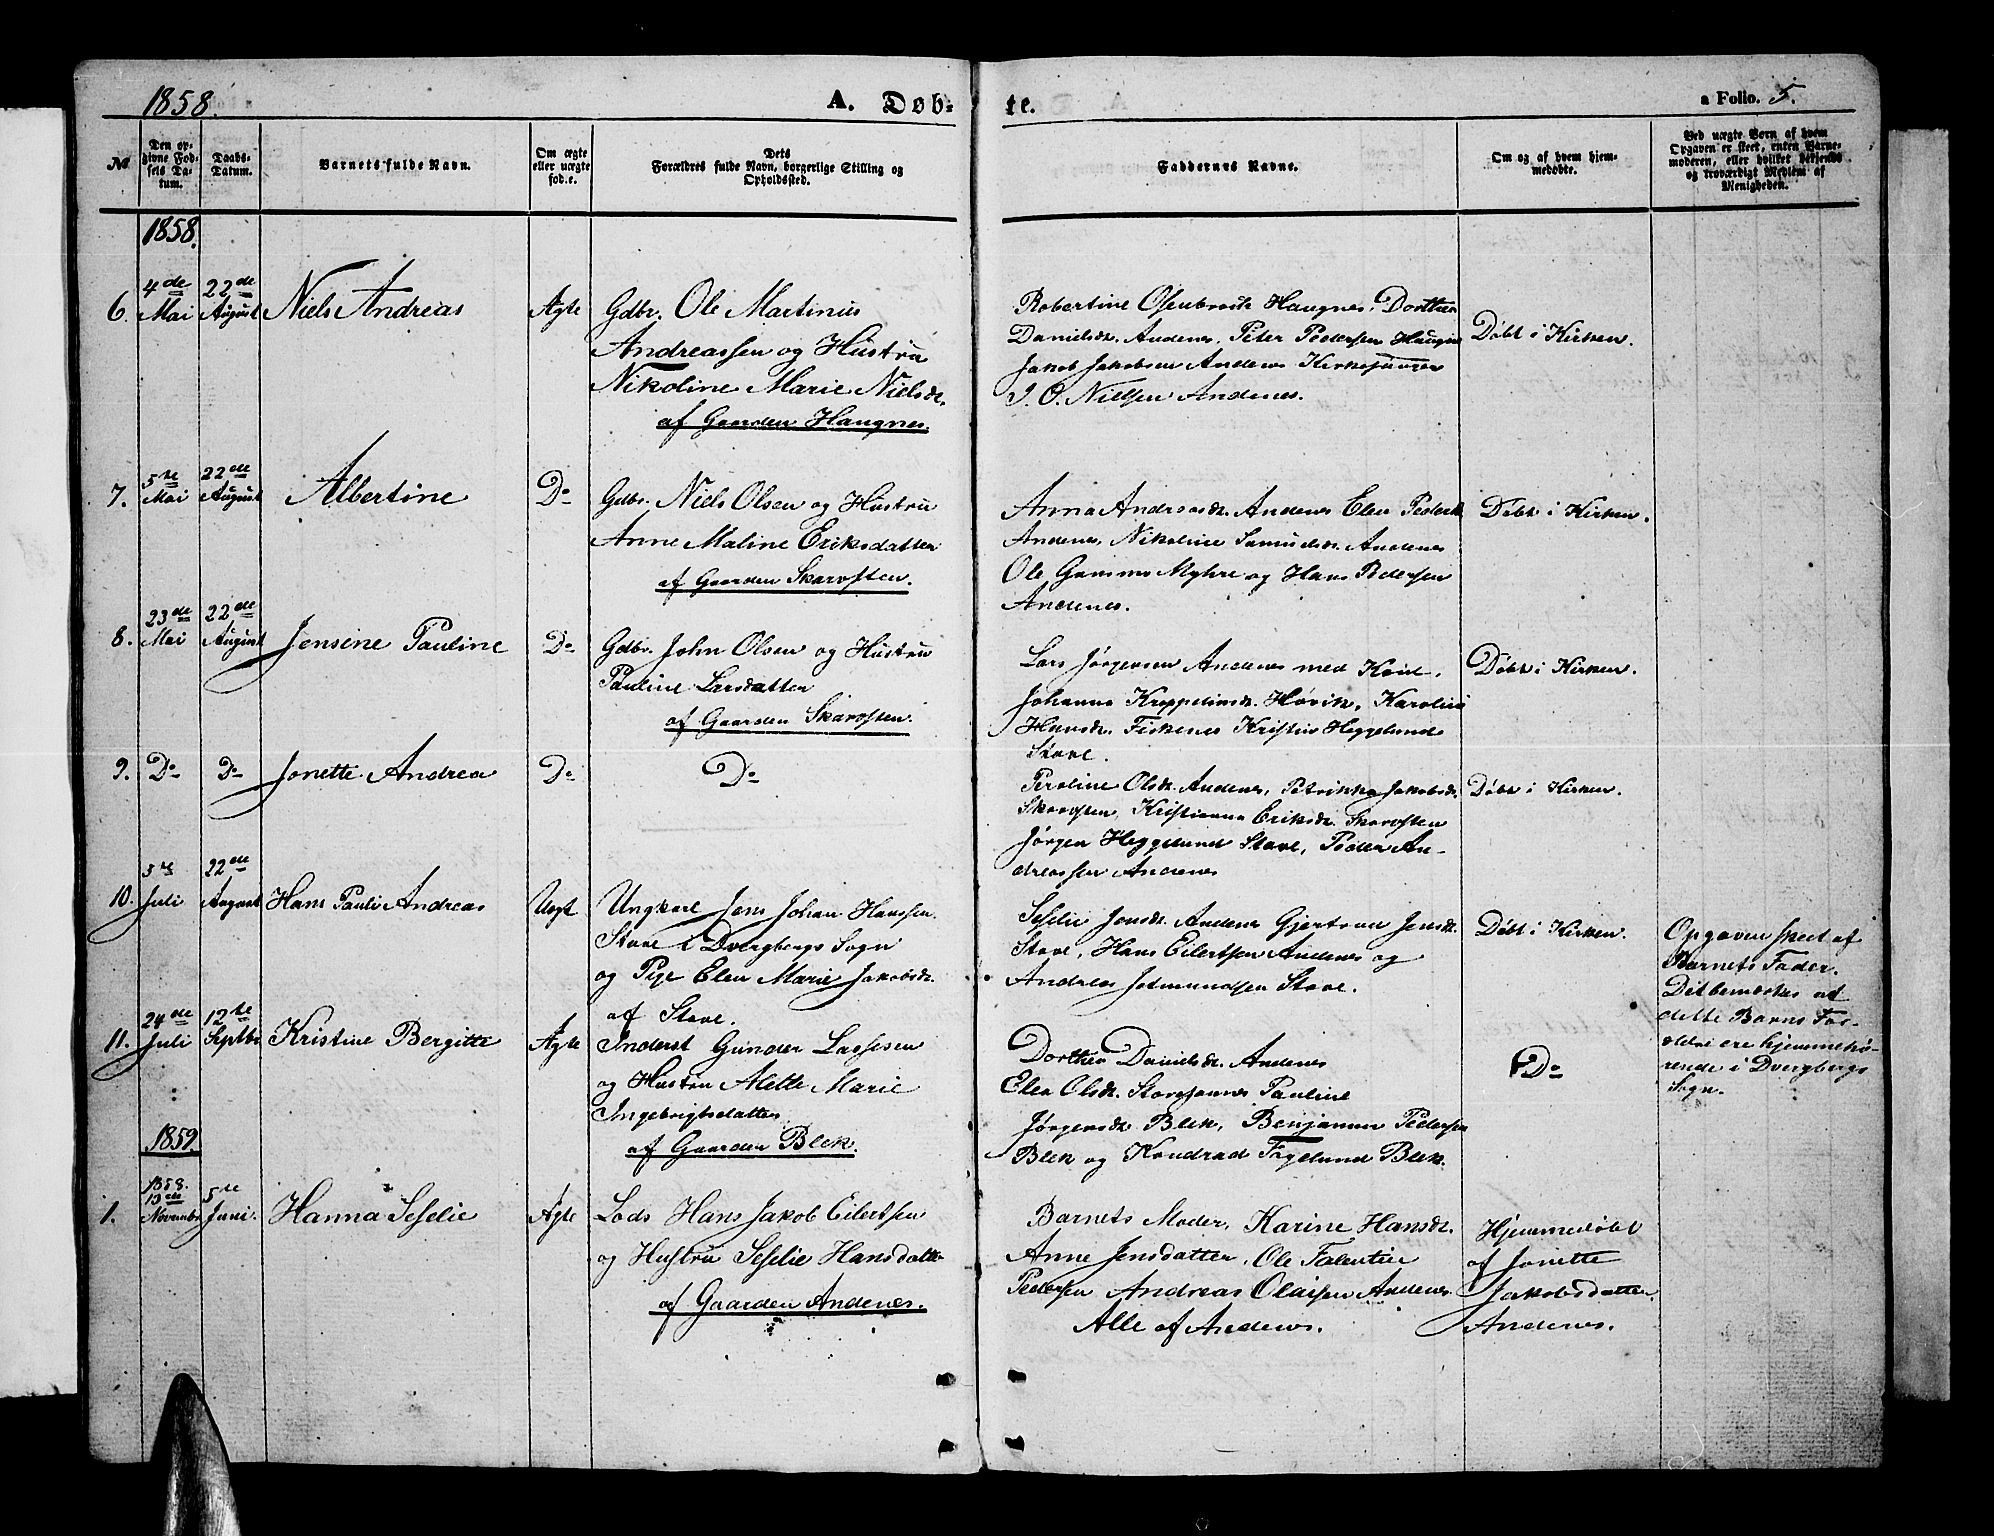 1858.
A. Døb-
te.
a Folio. 5.
№
Den op-
givne Fød-
sels Da-
tum.
Daabs-
Datum.
Barnets fulde Navn.
Om ægte
eller uægte
fød.e.
Dets
Forældres fulde Navn, borgerlige Stilling og
Opholdssted.
Faddernes Navne.
Om og af hvem hjem-
medøbte.
Ved uægte Børn af hvem
Opgaven er skeet, enten Barne-
moderen, eller hvilket bekjendt
og troværdigt Medlem af
Menigheden.
1858.
6.
4de
Mai
22de
August
Niels Andreas
Ægte
Gdbr. Ole Martinus
Andreassen og Hustru
Nikoline Marie Nielsdt.
af Gaarden Haugnes.
Robertine Osenbrock Haugnes, Dorthea
Danielsdt. Andenes, Peter Pedersen Haugnes
Jakob Jakobsen Andenes Kirkesanger
J. O. Nielsen Andenes.
Døbt i Kirken.
7.
5te
Mai
22de
August
Albertine
Do
Gdbr. Niels Olsen og Hustru
Anne Maline Eriksdatter
af Gaarden Skarvsten.
Anna Andreasdt. Andenes Elen Pedersdt.
Andenes, Nikoline Samuelsdt. Andenes
Ole Hans Pedersen
Andenes.
Døbt i Kirken.
8.
23de
Mai
22de
August
Jensine Pauline
Do
Gdbr. John Olsen og Hustru
Pauline Larsdatter
af Gaarden Skarvsten.
Lars Jørgensen Andenes med Kone,
Johanna Kreppelinsdt. Høvik, Karoline
Hansdt. Fiskenes Kristine Heggelund
Stave.
Døbt i Kirken.
9.
Do
Do
Jonette Andrea
Do
Do
Peroline Olsdt. Andenes, Petrikka Jakobsdt.
Skarvsten, Kristianna Eriksdt. Skarvsten
Jørgen Heggelund Stave, Peder An-
dreassen Andenes
Døbt i Kirken.
10.
5te
Juli
22de
August
Hans Pauli Andreas
Uægt
Ungkarl Jens Johan Hansen
Stave i Dverbergs Sogn
og Pige Elen Marie Jakobsdt.
af Stave.
Seselie Jensdt. Andenes Gjertrud Jensdt.
Stave, Hans Eilertsen Andenes og
Andreas Stave.
Døbt i Kirken.
Opgaven skeet af
Barnets Fader.
Det bemærkes at
dette Barns For-
ældre ere hjemmehø-
rende i Dverbergs
Sogn.
11.
24de
Juli
12te
Septbr.
Kristine Bergitte
Ægte
Inderst Gunder Lassesen
og Hustru Alette Marie
Ingebrigtsdatter
af Gaarden Blek.
Dorthea Danielsdt. Andenes
Elen Olsdt. Pauline
Jørgensdt. Blek, Benjamin Pedersen
Blek og Kondrad Fagelund Blek.
Do
1859.
1.
1858.
13de
Novembr.
5te
Juni.
Hanna Seselie
Ægte
Lods Hans Jakob Eilertsen
og Hustru Seselie Hansdatter
af Gaarden Andenes.
Barnets Moder, Karine Hansdt.
Anne Jensdatter, Ole Falentin
Pedersen Andreas Olaisen Andenes
Alle af Andenes.
Hjemmedøbt
af Jonette
Jakobsdatter
Andenes.